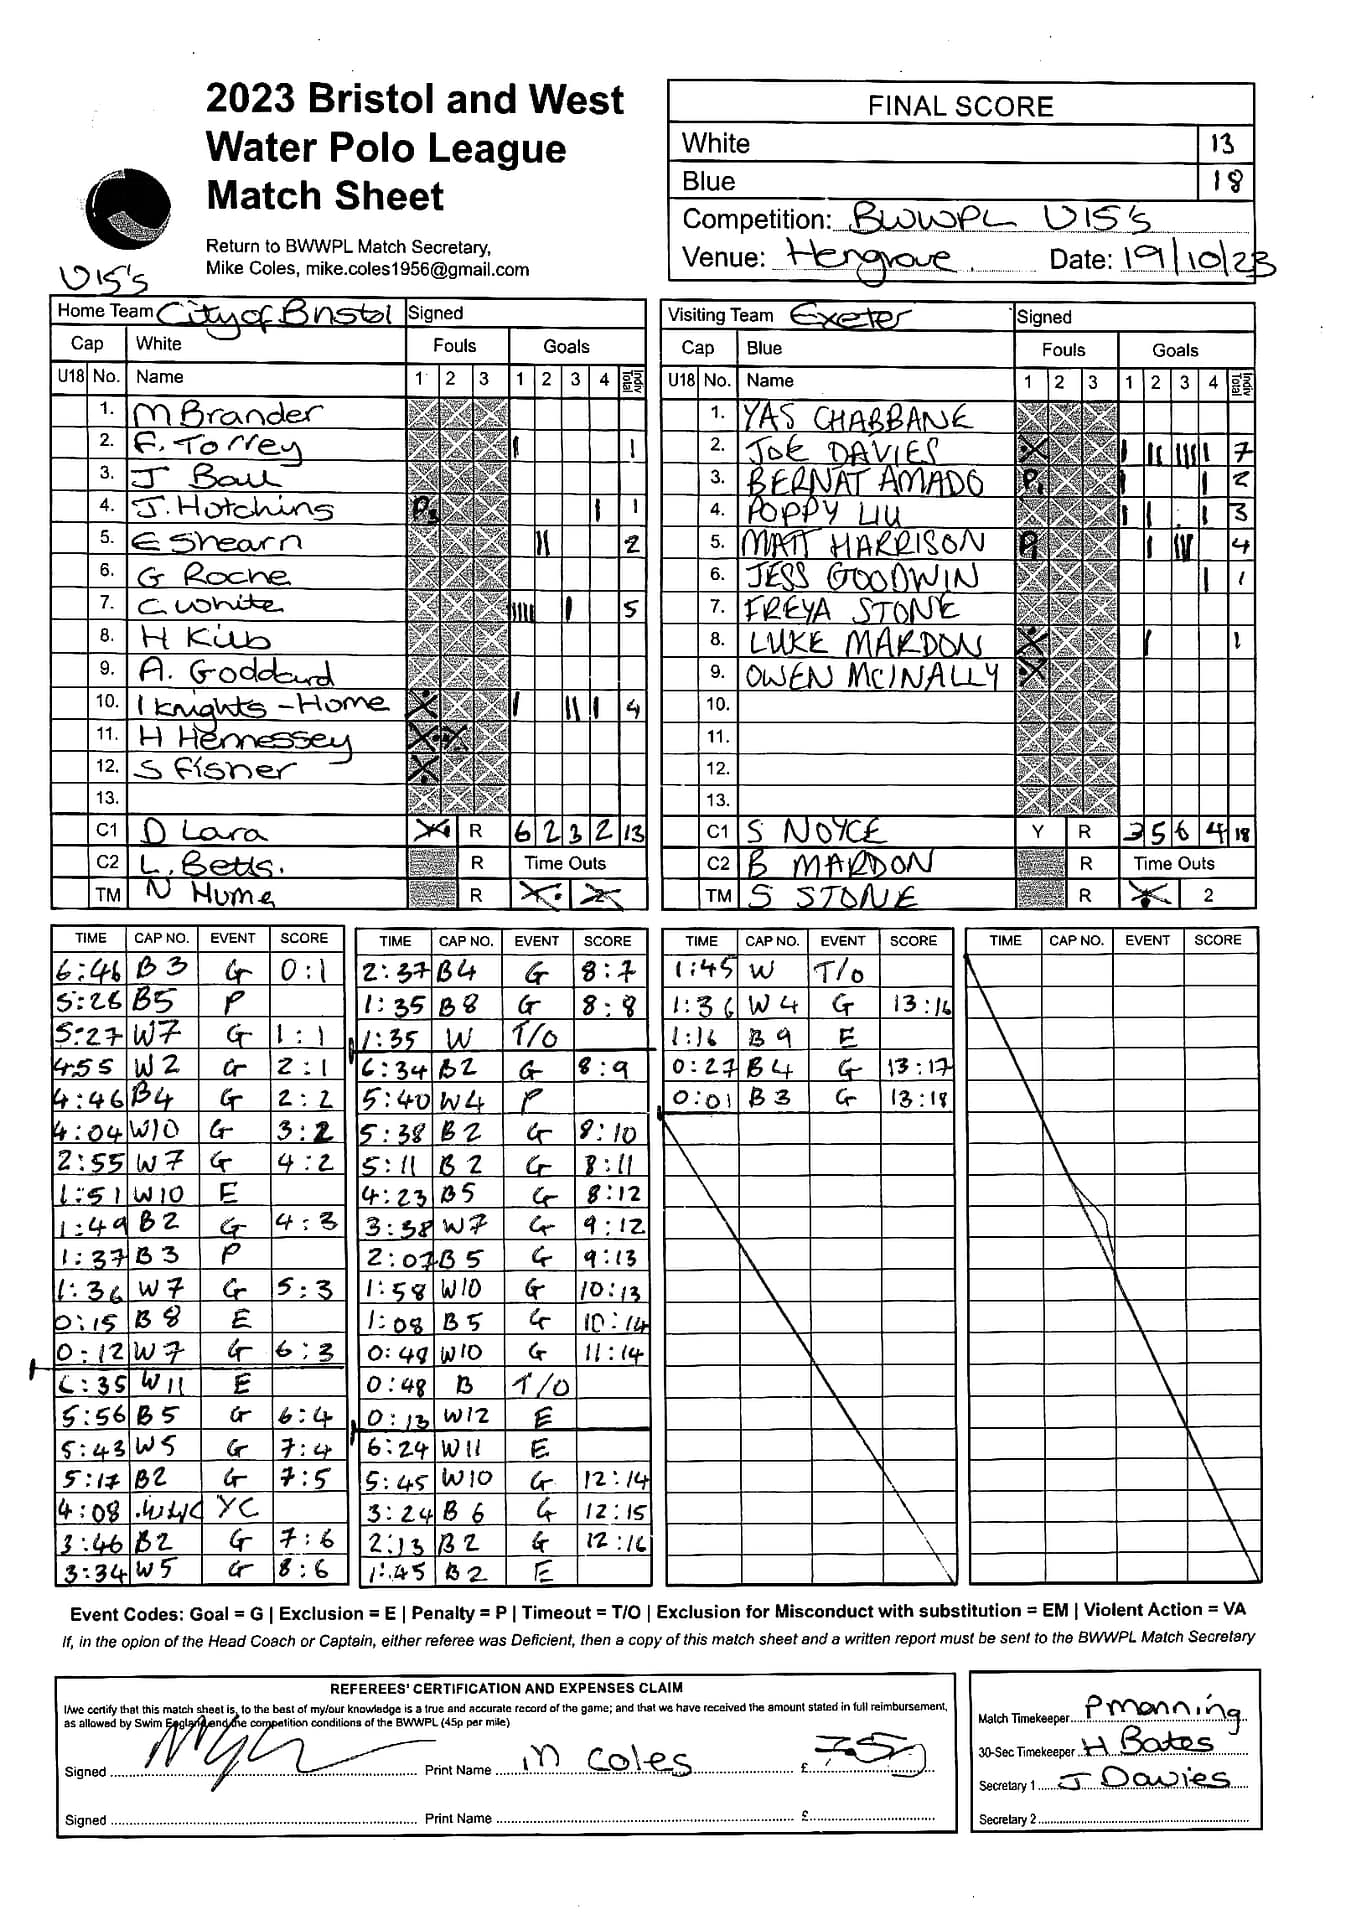 2023 Bristol and West
Water Polo League
Match Sheet
Return to BWWPL Match Secretary,
Mike Coles, mike.coles1956@gmail.com
U15's
FINAL SCORE
White 13
Blue 18
Competition: BWWPL U15's
Venue: Hengrove. Date: 19/10/23
Home Team City of Bristol Signed
Cap White Fouls Goals
U18 No. Name 1 2 3 1 2 3 4 Indiv Total
1. M Brander
2. F. Torrey 1
3. J Ball
4. J. Hotchins 1
5. E Shearn 2
6. G Roche
7. C. White 5
8. H Kilb
9. A. Goddard
10. I Knights-Home 4
11. H Hennessey
12. S Fisher
13.
C1 D Lara Y R 6 2 3 2 13
C2 L. Betts. R Time Outs
TM N Hume R 1 2
Visiting Team Exeter Signed
Cap Blue Fouls Goals
U18 No. Name 1 2 3 1 2 3 4 Indiv Total
1. YAS CHABBANE
2. JOE DAVIES 7
3. BERNAT AMADO 2
4. POPPY LIU 3
5. MATT HARRISON 4
6. JESS GOODWIN 1
7. FREYA STONE
8. LUKE MARDON 1
9. OWEN MCINALLY
10.
11.
12.
13.
C1 S NOYCE Y R 3 5 6 4 18
C2 B MARDON R Time Outs
TM S STONE R 1 2
TIME CAP NO. EVENT SCORE
6:46 B3 G 0:1
5:26 B5 P
5:27 W7 G 1:1
4:55 W2 G 2:1
4:46 B4 G 2:2
4:04 W10 G 3:2
2:55 W7 G 4:2
1:51 W10 E
1:49 B2 G 4:3
1:37 B3 P
1:36 W7 G 5:3
0:15 B8 E
0:12 W7 G 6:3
6:35 W11 E
5:56 B5 G 6:4
5:43 W5 G 7:4
5:17 B2 G 7:5
4:08 YC
3:46 B2 G 7:6
3:34 W5 G 8:6
TIME CAP NO. EVENT SCORE
2:37 B4 G 8:7
1:35 B8 G 8:8
1:35 W T/O
6:34 B2 G 8:9
5:40 W4 P
5:38 B2 G 8:10
5:11 B2 G 8:11
4:23 B5 G 8:12
3:58 W7 G 9:12
2:07 B5 G 9:13
1:58 W10 G 10:13
1:08 B5 G 10:14
0:49 W10 G 11:14
0:48 B T/O
0:13 W12 E
6:24 W11 E
5:45 W10 G 12:14
3:24 B6 G 12:15
2:13 B2 G 12:16
1:45 B2 E
TIME CAP NO. EVENT SCORE
1:45 W T/O
1:36 W4 G 13:16
1:16 B9 E
0:27 B4 G 13:17
0:01 B3 G 13:18
TIME CAP NO. EVENT SCORE
Event Codes: Goal = G | Exclusion = E | Penalty = P | Timeout = T/O | Exclusion for Misconduct with substitution = EM | Violent Action = VA
If, in the opion of the Head Coach or Captain, either referee was Deficient, then a copy of this match sheet and a written report must be sent to the BWWPL Match Secretary
REFEREES' CERTIFICATION AND EXPENSES CLAIM
I/we certify that this match sheet is, to the best of my/our knowledge is a true and accurate record of the game; and that we have received the amount stated in full reimbursement,
as allowed by Swim England and the competition conditions of the BWWPL (45p per mile)
Signed Print Name M Coles £ 7.50
Signed Print Name £
Match Timekeeper P Manning
30-Sec Timekeeper H Bates
Secretary 1 J Davies
Secretary 2